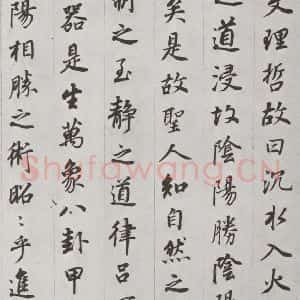 文理哲故曰沉水入火
之道浸故陰陽勝陰陽
矣是故聖人知自然之
制之至靜之道律呂
器是生萬象八卦甲
陽相勝之術昭〻乎進
Shufawang.CN